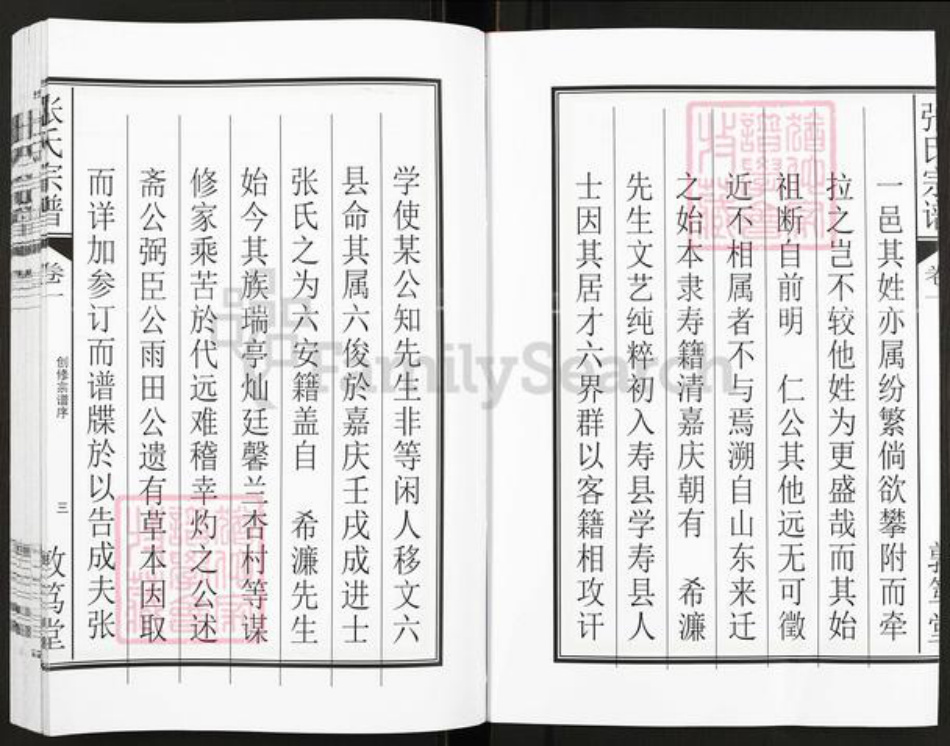 张氏宗谱
卷一
敦笃堂
一邑其姓亦属纷繁倘欲攀附而牵
拉之岂不较他姓为更盛哉而其始
祖断自前明　仁公其他远无可徵
近不相属者不与焉溯自山东来迁
之始本隶寿籍清嘉庆朝有　希濂
先生文艺纯粹初入寿县学寿县人
士因其居才六界群以客籍相攻讦
学使某公知先生非等闲人移文六
县命其属六俊於嘉庆壬戌成进士
张氏之为六安籍盖自　希濂先生
始今其族瑞亭灿廷馨兰杏村等谋
修家乘苦於代远难稽幸灼之公述
斋公弼臣公雨田公遗有草本因取
而详加参订而谱牒於以告成夫张
张氏宗谱
卷一
创修宗谱序
三
敦笃堂
FamilySearch